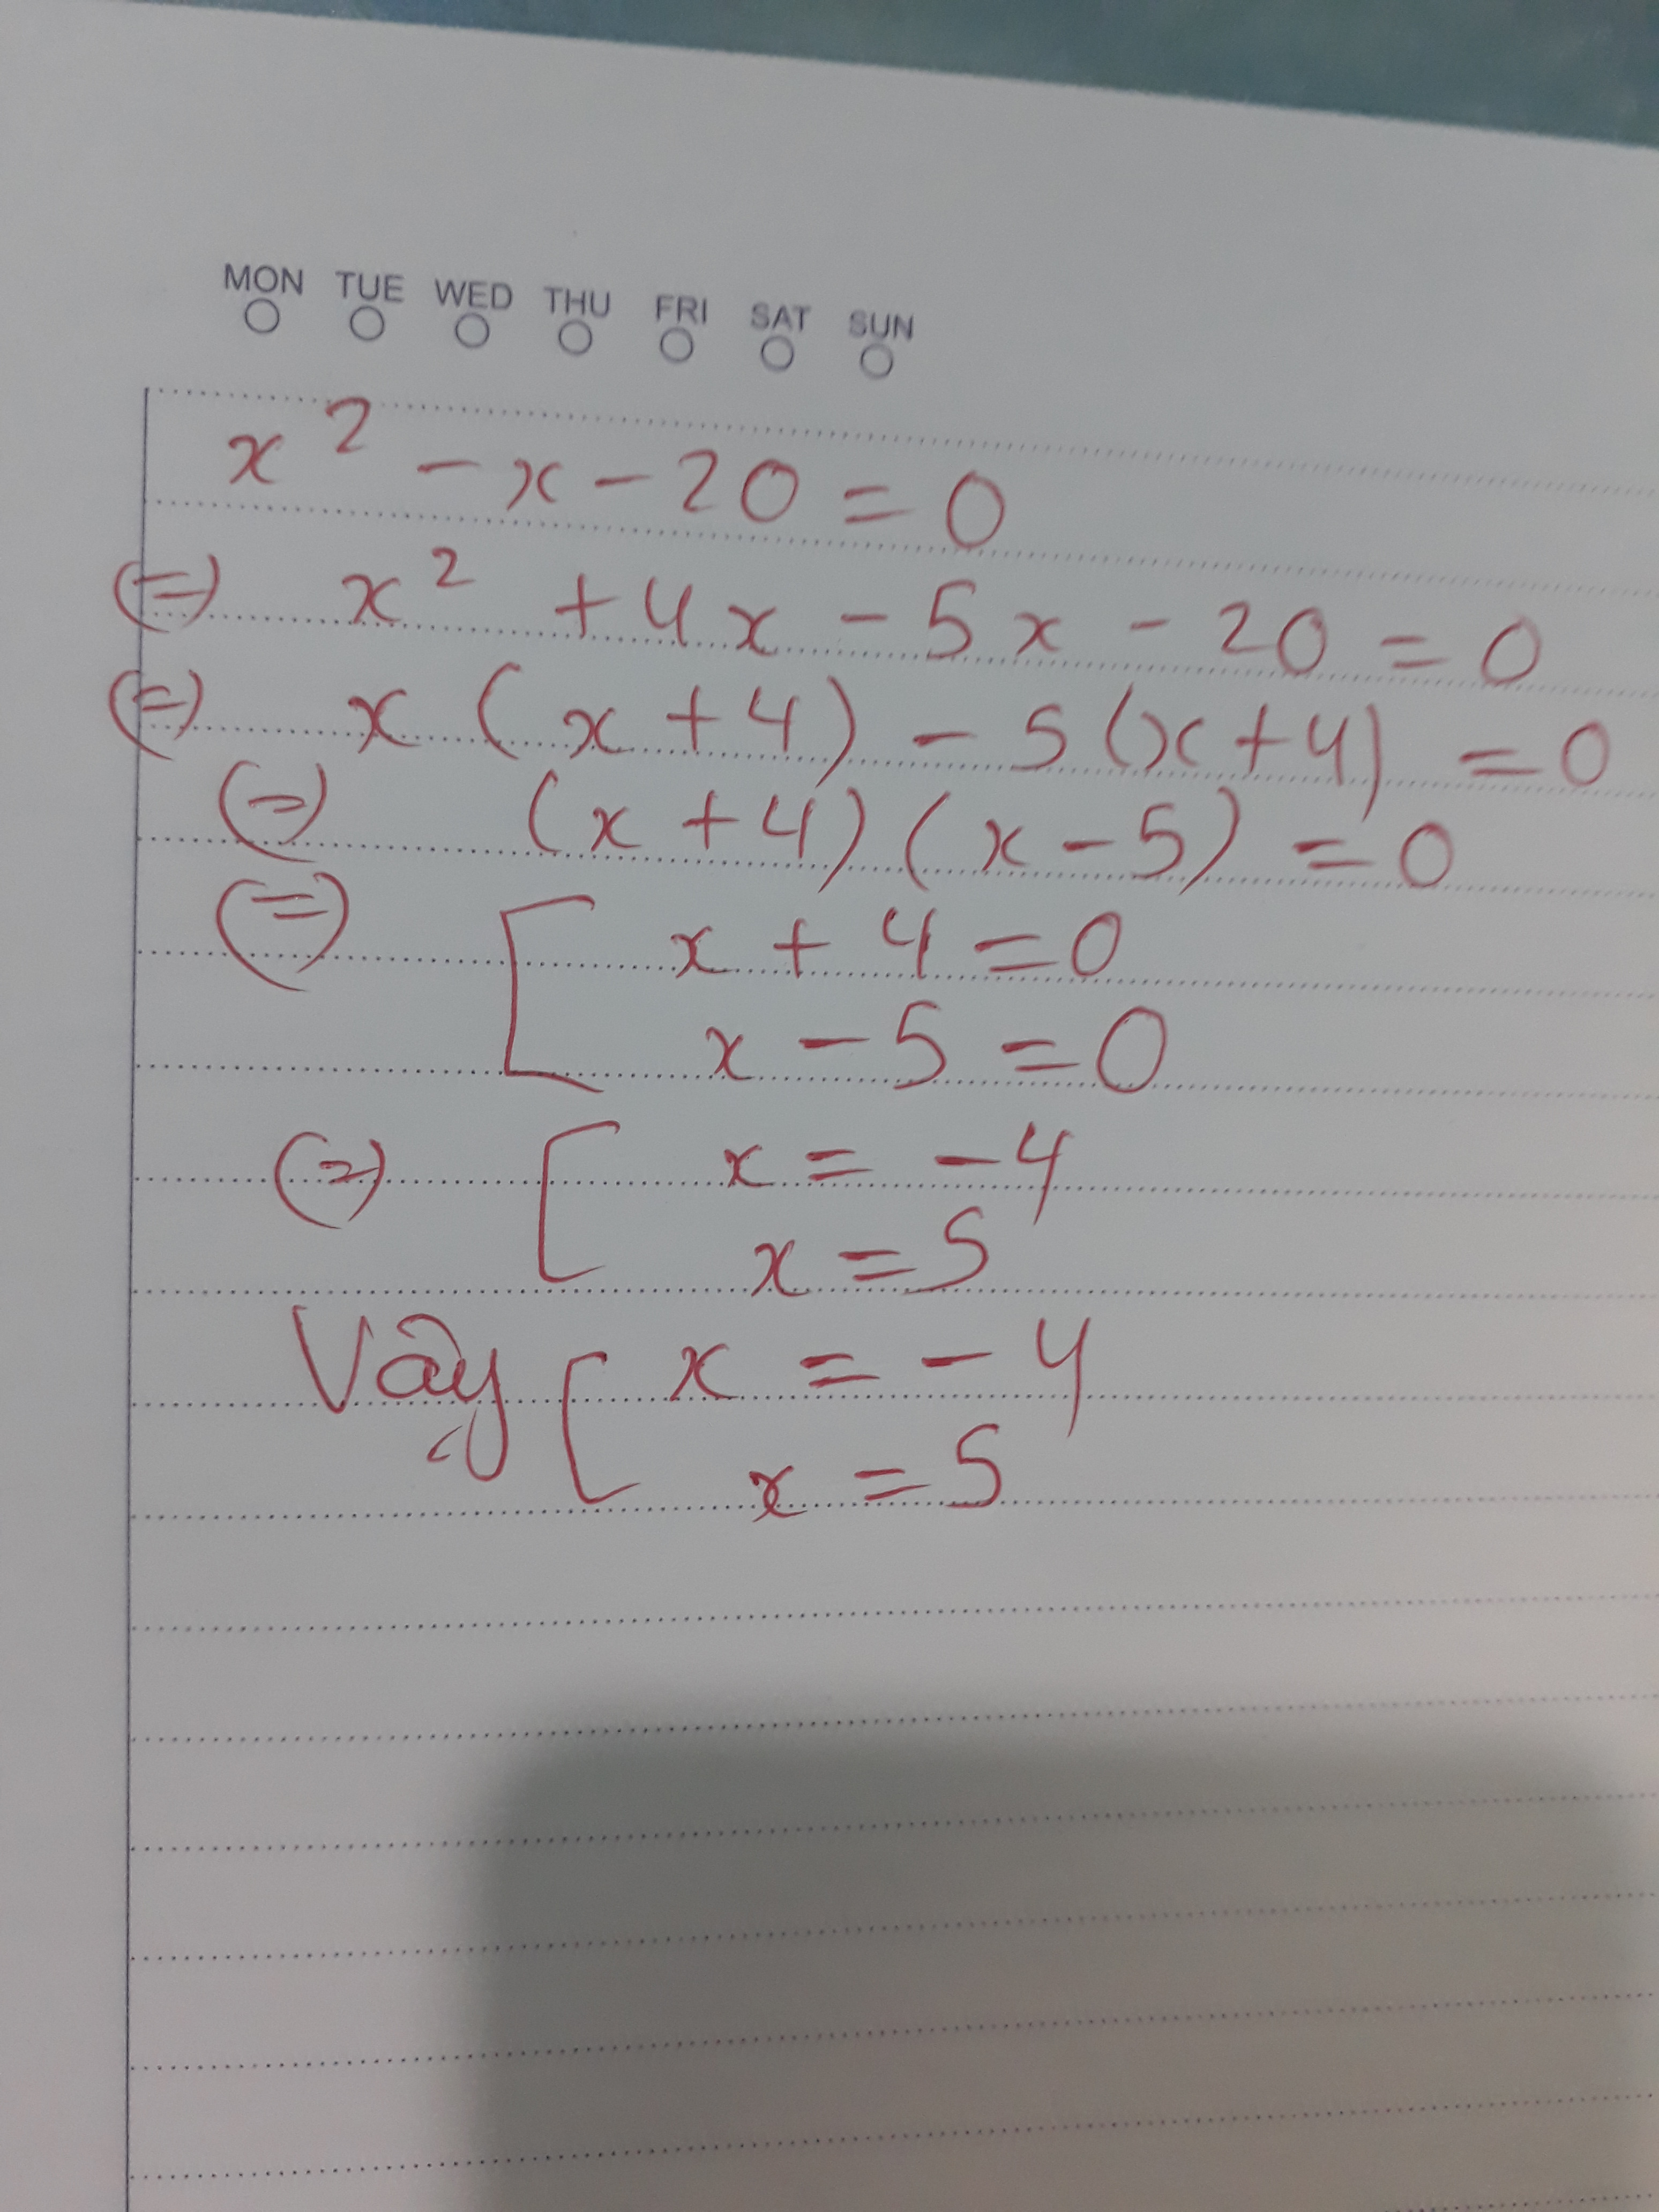 MON TUE WED THU FRI SAT SUN
x² - x - 20 = 0
(=) x² + 4x - 5x - 20 = 0
(=) x (x + 4) - 5 (x + 4) = 0
(=) (x + 4) (x - 5) = 0
(=) [ x + 4 = 0
x - 5 = 0
(=) [ x = - 4
x = 5
Vậy [ x = - 4
x = 5